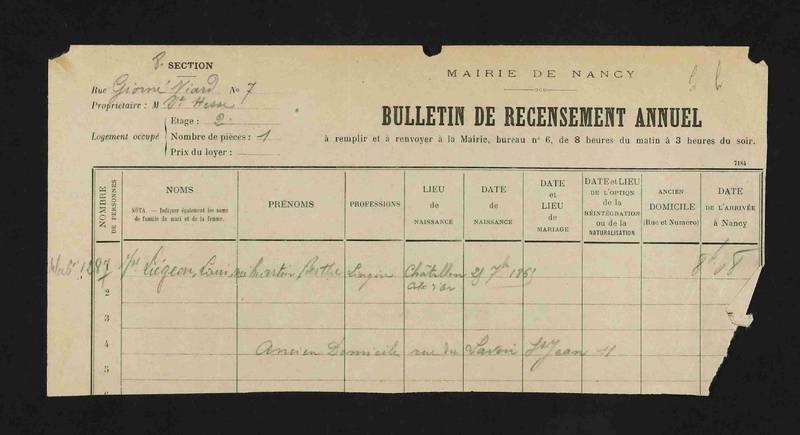 8. SECTION
Rue Giorné Viard No 7
Propriétaire : M Vt Hesse
Logement occupé
Etage : 2
Nombre de pièces : 1
Prix du loyer :
MAIRIE DE NANCY
BULLETIN DE RECENSEMENT ANNUEL
à remplir et à renvoyer à la Mairie, bureau n° 6, de 8 heures du matin à 3 heures du soir.
7184
NOMBRE DE PERSONNES
NOMS
NOTA. — Indiquer également les noms de famille du mari et de la femme.
PRÉNOMS
PROFESSIONS
LIEU de NAISSANCE
DATE de NAISSANCE
DATE et LIEU de MARIAGE
DATE et LIEU DE L'OPTION de la RÉINTÉGRATION ou de la NATURALISATION
ANCIEN DOMICILE (Rue et Numéro)
DATE DE L'ARRIVÉE à Nancy
1287 Liégeon, Louis Berthe Lingère Châtillon
Côte d'Or
2
3
4 Ancien Domicile rue du Savoir St Jean 11
5